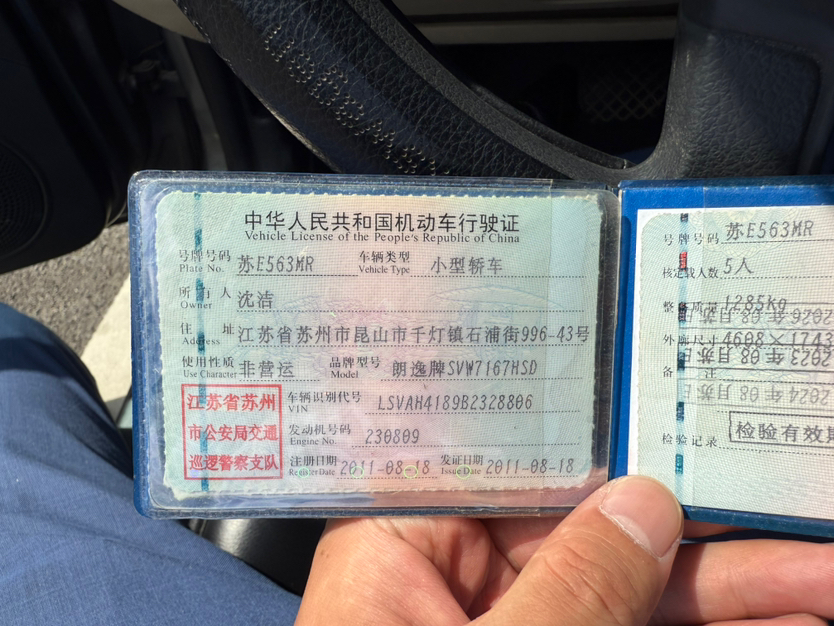 中华人民共和国机动车行驶证
Vehicle License of the People's Republic of China
号牌号码 Plate No. 苏E563MR 车辆类型 Vehicle Type 小型轿车
所有人 Owner 沈洁
住址 Address 江苏省苏州市昆山市千灯镇石浦街996-43号
使用性质 Use Character 非营运 品牌型号 Model 朗逸牌SVW7167HSD
车辆识别代号 VIN LSVAH4189B2328806
发动机号码 Engine No. 230809
注册日期 Register Date 2011-08-18 发证日期 Issue Date 2011-08-18
江苏省苏州
市公安局交通
巡逻警察支队
号牌号码 苏E563MR
核定载人数 5人
整备质量 1285Kg
外廓尺寸 4608×1743
备注
检验记录 检验有效期